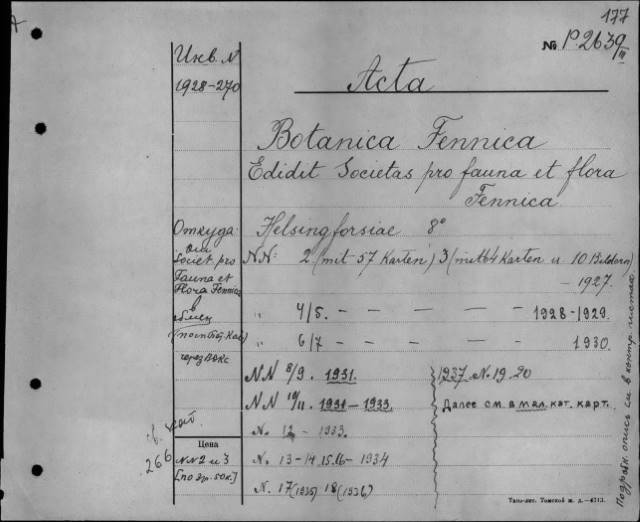 177
№ P.2639/II
Инв. №
1928-270
Acta
Botanica Fennica
Edidit Societas pro fauna et flora
Fennica
Откуда:
Helsingforsiae 8°
Societ. pro
Fauna et
Flora Fennica
в
обмен
через ВОКС
N.N: 2 (mit 57 Karten) 3 (mit 64 Karten u. 10 Bildern)
- 1927.
" 4/5. - - - - - 1928-1929.
" 6/7 - - - - - 1930.
N N 8/9. 1931.
N N 10/11. 1931-1933.
N. 12 - 1933.
N. 13-14. 15.16 - 1934
N. 17 (1935) 18 (1936)
1937. N. 19. 20
Далее см. в мал. кат. карт.
266
Цена
N.N 2 и 3
[по др. 50 к.]
Подробн. опись см. в контр. листах
Типо-лит. Томской ж. д.—4713.